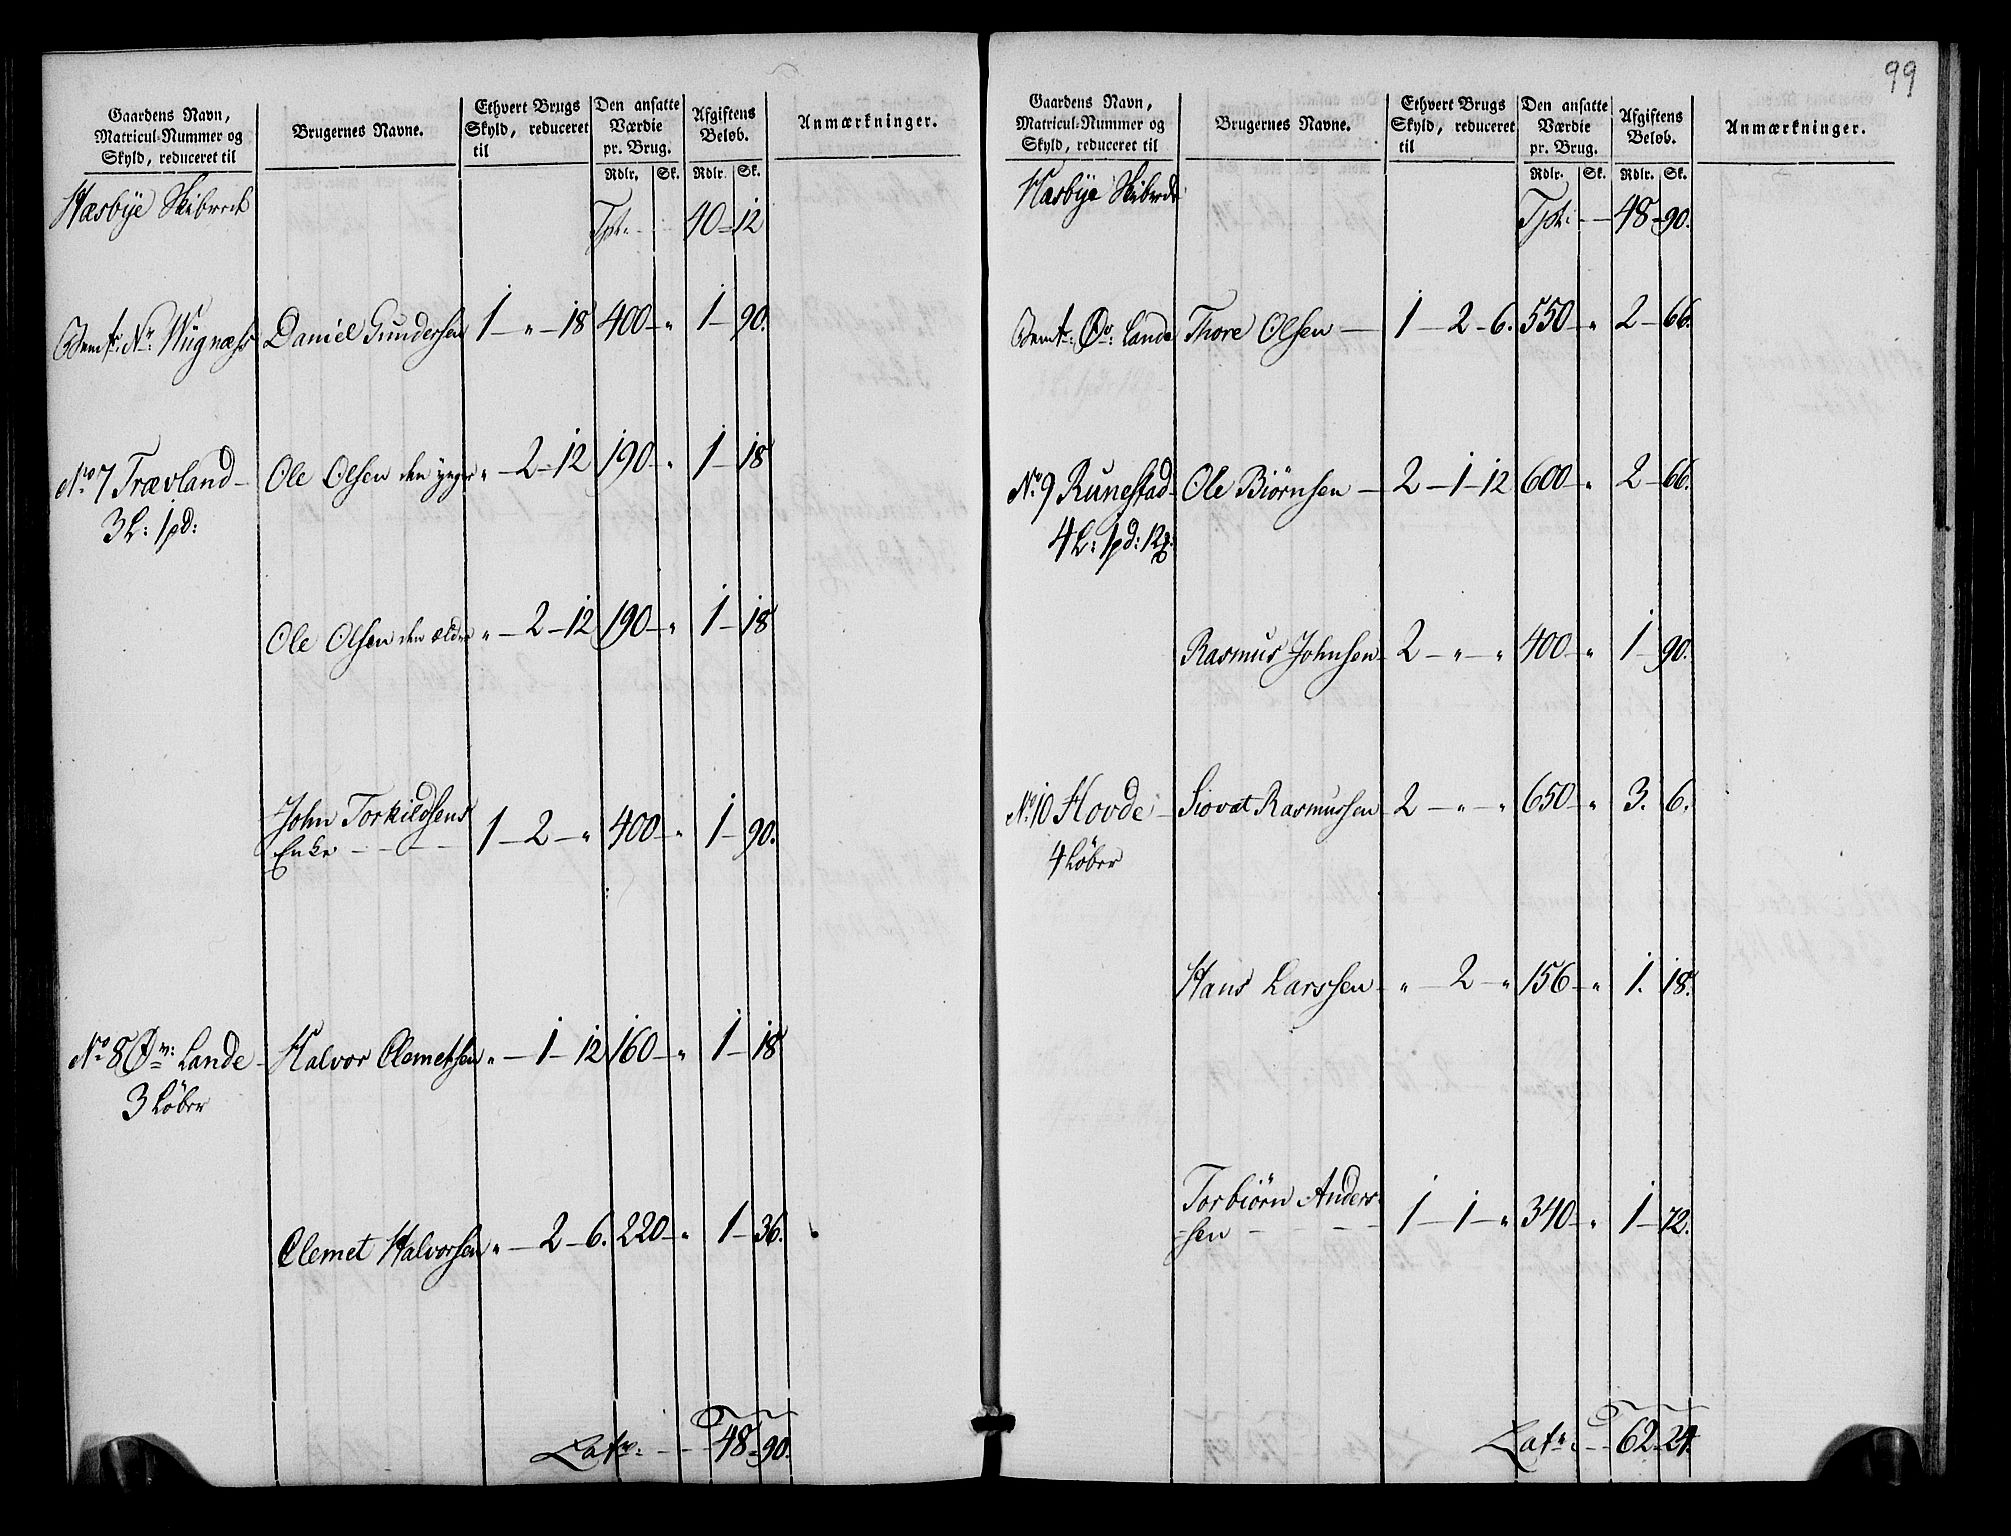 99
Gaardens Navn,
Matricul-Nummer og
Skyld, reduceret til
Brugernes Navne.
Ethvert Brugs
Skyld, reduceret
til
Den ansatte
Værdie
pr. Brug.
Afgiftens
Beløb.
Anmærkninger.
Rdlr. Sk. Rdlr. Sk.
Hæsbye Skibrede
Tpt: - - 40 - 12
Nr: Wignæss Daniel Gundersen 1 - " - 18 400 - " 1 - 90.
No 7 Trævland - Ole Olsen den yngre " - 2 - 12 190 - " 1 - 18
3 L: 1 pd:
Ole Olsen den ældre " - 2 - 12 190 - " 1 - 18
John Torkildsens
Enke - - - 1 - 2 - " 400 - " 1 - 90.
No 8 Øv: Lande - Halvor Clemetsen " - 1 - 12 160 - " 1 - 18
3 Løber
Clemet Halvorsen " - 2 - 6. 220 - " 1 - 36.
Lat: - - 48 - 90.
Gaardens Navn,
Matricul-Nummer og
Skyld, reduceret til
Brugernes Navne.
Ethvert Brugs
Skyld, reduceret
til
Den ansatte
Værdie
pr. Brug.
Afgiftens
Beløb.
Anmærkninger.
Rdlr. Sk. Rdlr. Sk.
Hæsbye Skibrede
Tpt: - - 48 - 90.
Øv: Lande Thore Olsen - 1 - 2 - 6. 550 - " 2 - 66.
No 9 Runestad - Ole Biørnsen - 2 - 1 - 12 600 - " 2 - 66.
4 L: 1 pd: 12
Rasmus Johnsen - 2 - " - " 400 - " 1 - 90.
No 10 Hovde - Siovat Rasmussen 2 - " - " 650 - " 3. 6.
4 Løber
Hans Larssen - " - 2 - " 156 - " 1. 18.
Torbiørn Anders-
-sen - - - 1 - 1 - " 340 - " 1 - 72.
Lat: - - 62 - 24.